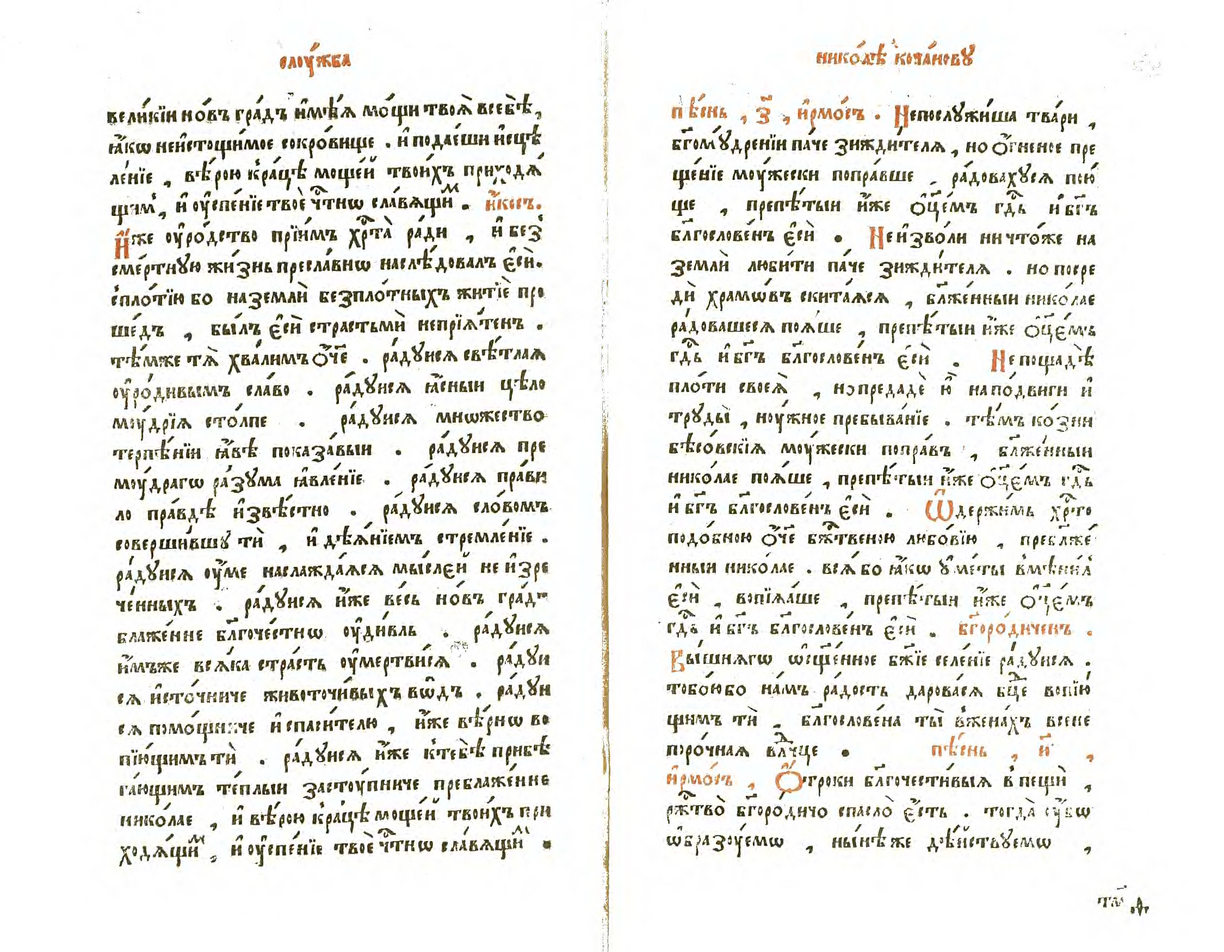 слꙋ́жба
вели́кїи но́въ гра́дъ и҆мѣ́ѧ мо́щи твоѧ̀ всебѣ̀,
ꙗ҆́кѡ неи҆стощи́мое сокро́вище . и҆ подае́ши и҆сцѣ
ле́нїе , вѣ́рою к̾ра́цѣ моще́й твои́хъ приходѧ́
щимъ , и҆ оу҆спе́нїе твоѐ чⷭ҇тнѡ сла́вѧщиⷨ . и҆́косъ.
И҆́же оу҆ро́дство прїи́мъ хрⷭ҇та̀ ра́ди , и҆ без
сме́ртнꙋю жи́знь пресла́внѡ наслѣ́довалъ є҆сѝ.
с̾пло́тїю бо наземлѝ безпло́тныхъ житїѐ про
ше́дъ , бы́лъ є҆сѝ страстьмѝ непрїѧ́тенъ .
тѣ́мже тѧ̀ хва́лимъ ѻ҆́ч҃е . ра́дꙋисѧ свѣ́тлаѧ
оу҆ро́дивымъ сла́во . ра́дꙋисѧ ꙗ҆́сныи цѣ́ло
мꙋ́дрїѧ сто́лпе . ра́дꙋисѧ мнѡ́жество
терпѣ́нїи ꙗ҆́вѣ показа́выи . ра́дꙋисѧ пре
мꙋ́драгѡ ра́зꙋма ꙗ҆вле́нїе . ра́дꙋисѧ пра́ви
ло пра́вдѣ и҆звѣ́стно . ра́дꙋисѧ сло́вомъ
соверши́вшꙋ тѝ , и҆ дѣѧ́нїемъ стремле́нїе .
ра́дꙋисѧ оу҆́ме наслажда́ѧсѧ мы́слей не и҆зре
че́нныхъ . ра́дꙋисѧ и҆́же весь но́въ гра́дъ
блаже́нне бл҃гоче́стнѡ оу҆диви́въ . ра́дꙋисѧ
и҆́мъже всѧ́ка стра́сть оу҆мертви́сѧ . ра́дꙋи
сѧ и҆сто́чниче животочи́выхъ во́дъ . ра́дꙋи
сѧ помо́щниче и҆ спаси́телю , и҆́же вѣ́рнѡ во
пїю́щимъ тѝ . ра́дꙋисѧ и҆́же к̾тебѣ̀ прибѣ
га́ющимъ те́плыи засту́пниче преблаже́нне
нико́лае , и҆ вѣ́рою к̾ра́цѣ моще́й твои́хъ при
ходѧ́щиⷨ , и҆ оу҆спе́нїе твоѐ чⷭ҇тнѡ сла́вѧщиⷨ .
нико́лѣ коча́новꙋ
пѣ́снь , з҃ , и҆рмо́съ . Непослꙋжи́ша тва́ри ,
бг҃омꙋ́дренїи па́че зижди́телѧ , но ѻ҆́гненое пре
ще́нїе мꙋ́жески попра́вше , ра́довахꙋсѧ пою́
ще , препѣ́тыи и҆́же ѻ҆ц҃е́мъ гдⷭ҇ь и҆ бг҃ъ
благослове́нъ є҆сѝ . Неи҆зво́ли ничто́же на
землѝ люби́ти па́че зижди́телѧ . но посре
дѝ хра́мѡвъ скита́ѧсѧ , бл҃же́нныи нико́лае
ра́довашесѧ поѧ́ше , препѣ́тыи и҆́же ѻ҆ц҃е́мъ
гдⷭ҇ь и҆ бг҃ъ бл҃гослове́нъ є҆сѝ . Не пощадѣ̀
пло́ти своеѧ̀ , но предадѐ ю҆̀ на по́двиги и҆
трꙋды̀ , нꙋ́жное пребыва́нїе . тѣ́мъ ко́зни
бѣсо́вскїѧ мꙋ́жески попра́въ , бл҃же́нныи
нико́лае поѧ́ше , препѣ́тыи и҆́же ѻ҆ц҃е́мъ гдⷭ҇ь
и҆ бг҃ъ бл҃гослове́нъ є҆сѝ . Ѿдержи́мь хрⷭ҇то
подо́бною ѻ҆́ч҃е бжⷭ҇твеною любо́вїю , пребл҃же́
нныи нико́лае . всѧ̀ бо ꙗ҆́кѡ ᲂу҆ме́ты вмѣни́лъ
є҆сѝ , вопїѧ́ше , препѣ́тыи и҆́же ѻ҆ц҃е́мъ
гдⷭ҇ь и҆ бг҃ъ бл҃гослове́нъ є҆сѝ . бг҃оро́диченъ .
Вы́шнѧгѡ ѡ҆сщ҃е́нное бж҃їе селе́нїе ра́дꙋисѧ .
тобо́ю бо на́мъ ра́дость дарова́сѧ бц҃е вопїю́
щимъ тѝ , бл҃гослове́на ты̀ в̾жена́хъ всене
поро́чнаѧ влⷣчце . пѣ́снь , и҃ ,
и҆рмо́съ , Ѻ҆́троки бл҃гочести́выѧ в̾ пещѝ ,
ржⷭ҇тво̀ бг҃оро́дичо спасло̀ є҆́сть . тогда̀ оу҆́бѡ
ѡ҆бразꙋ́емѡ , ны́нѣ же дѣ́йствꙋемѡ ,